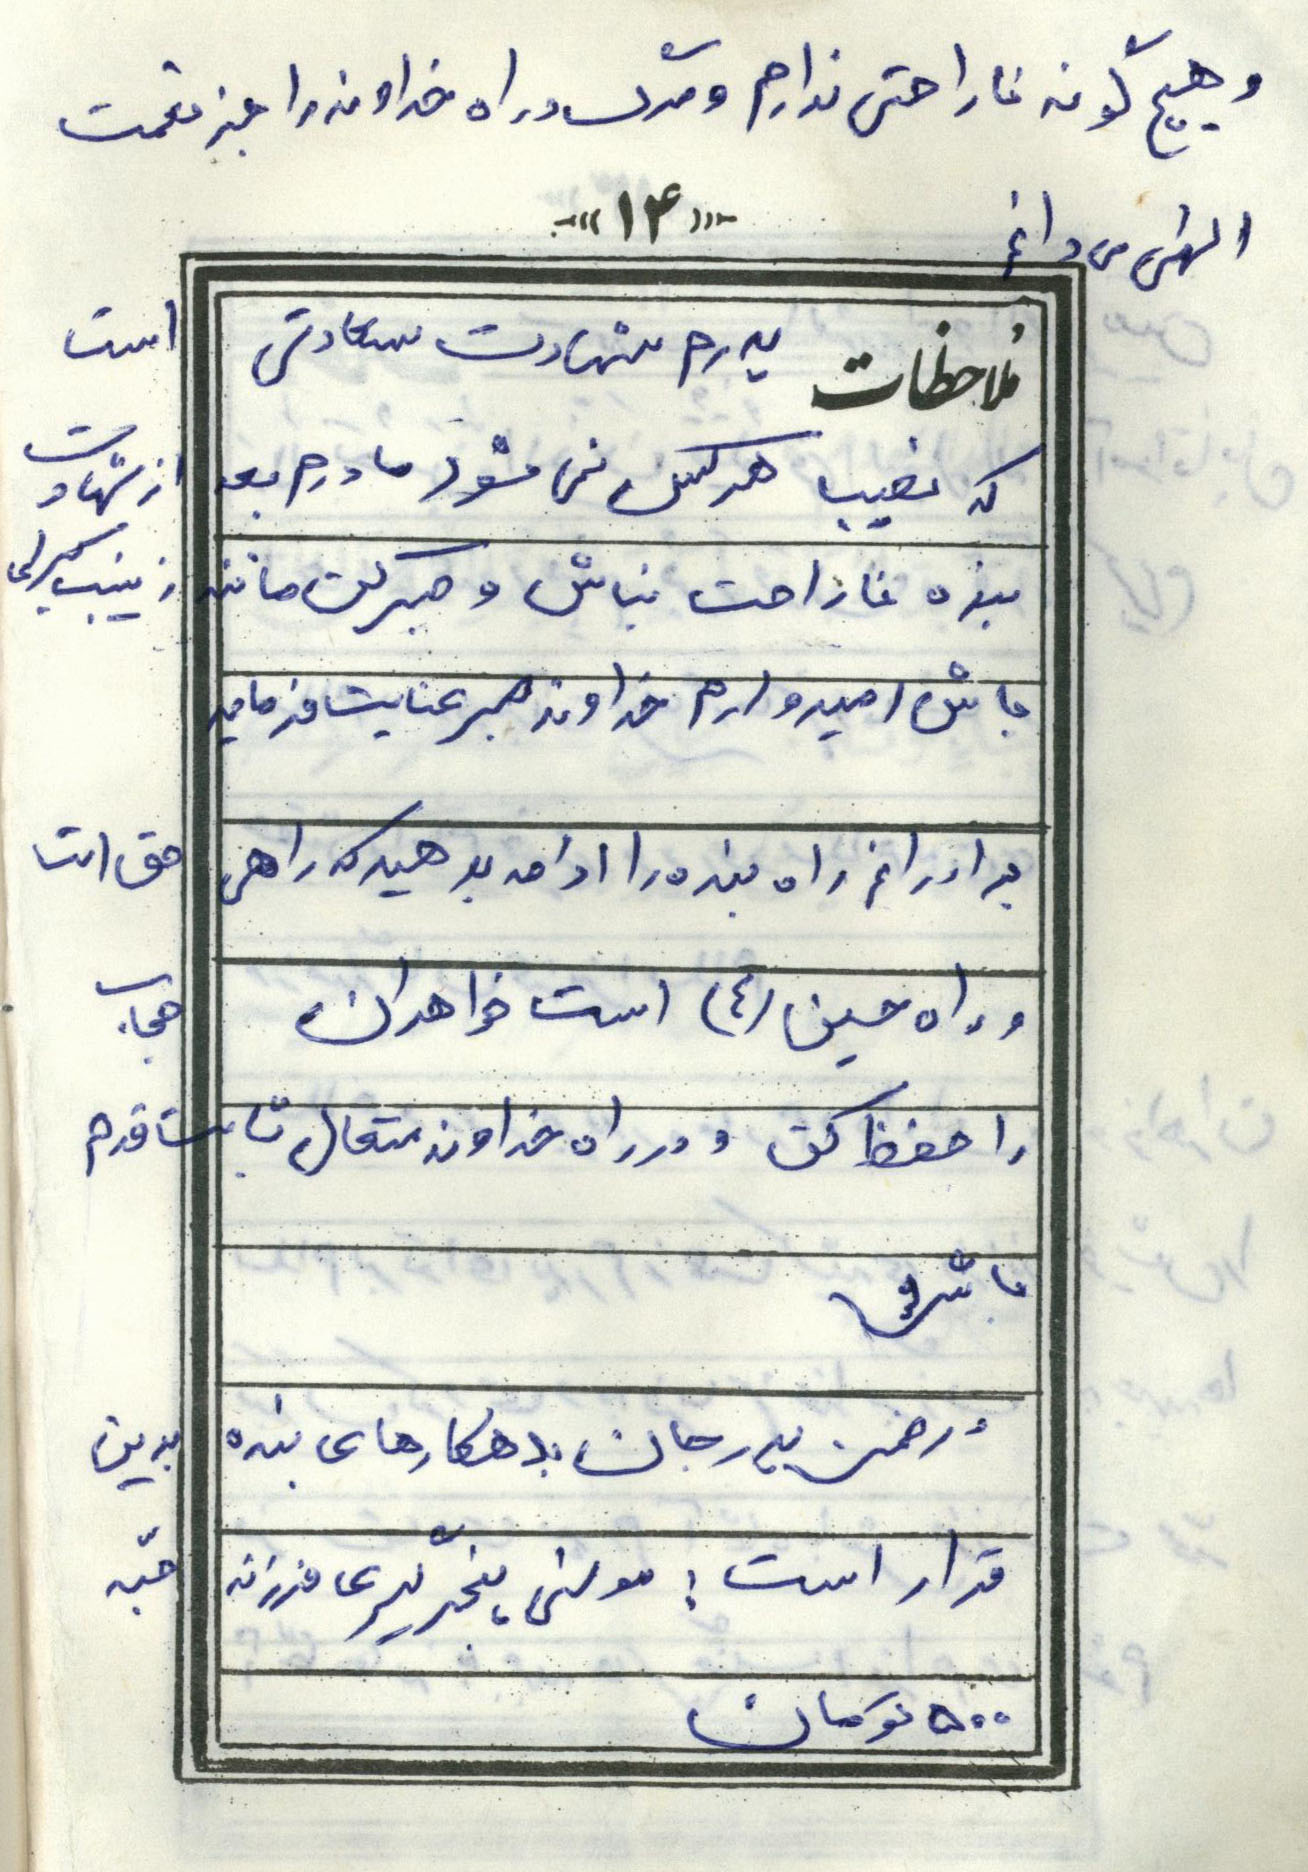 و هیچ گونه ناراحتی ندارم و مرگ در راه خداوند را جز نعمت
الهی می دانم
«۱۴»
ملاحظات پدرم شهادت سعادتی است
که نصیب هر کس نمی شود مادرم بعد از شهادت
بنده ناراحت نباش و صبر کن مانند زینب کبرای
باش امیدوارم خداوند صبر عنایت فرماید
برادرانم راه بنده را ادامه بدهید که راهی حق است
و راه حسین (ع) است خواهران حجاب
را حفظ کن و در راه خداوند متعال ثابت قدم
باش
در ضمن پدر جان بدهکارهای بنده بدین
قرار است: پنجرگیری فرزانه
۵۰۰ تومان